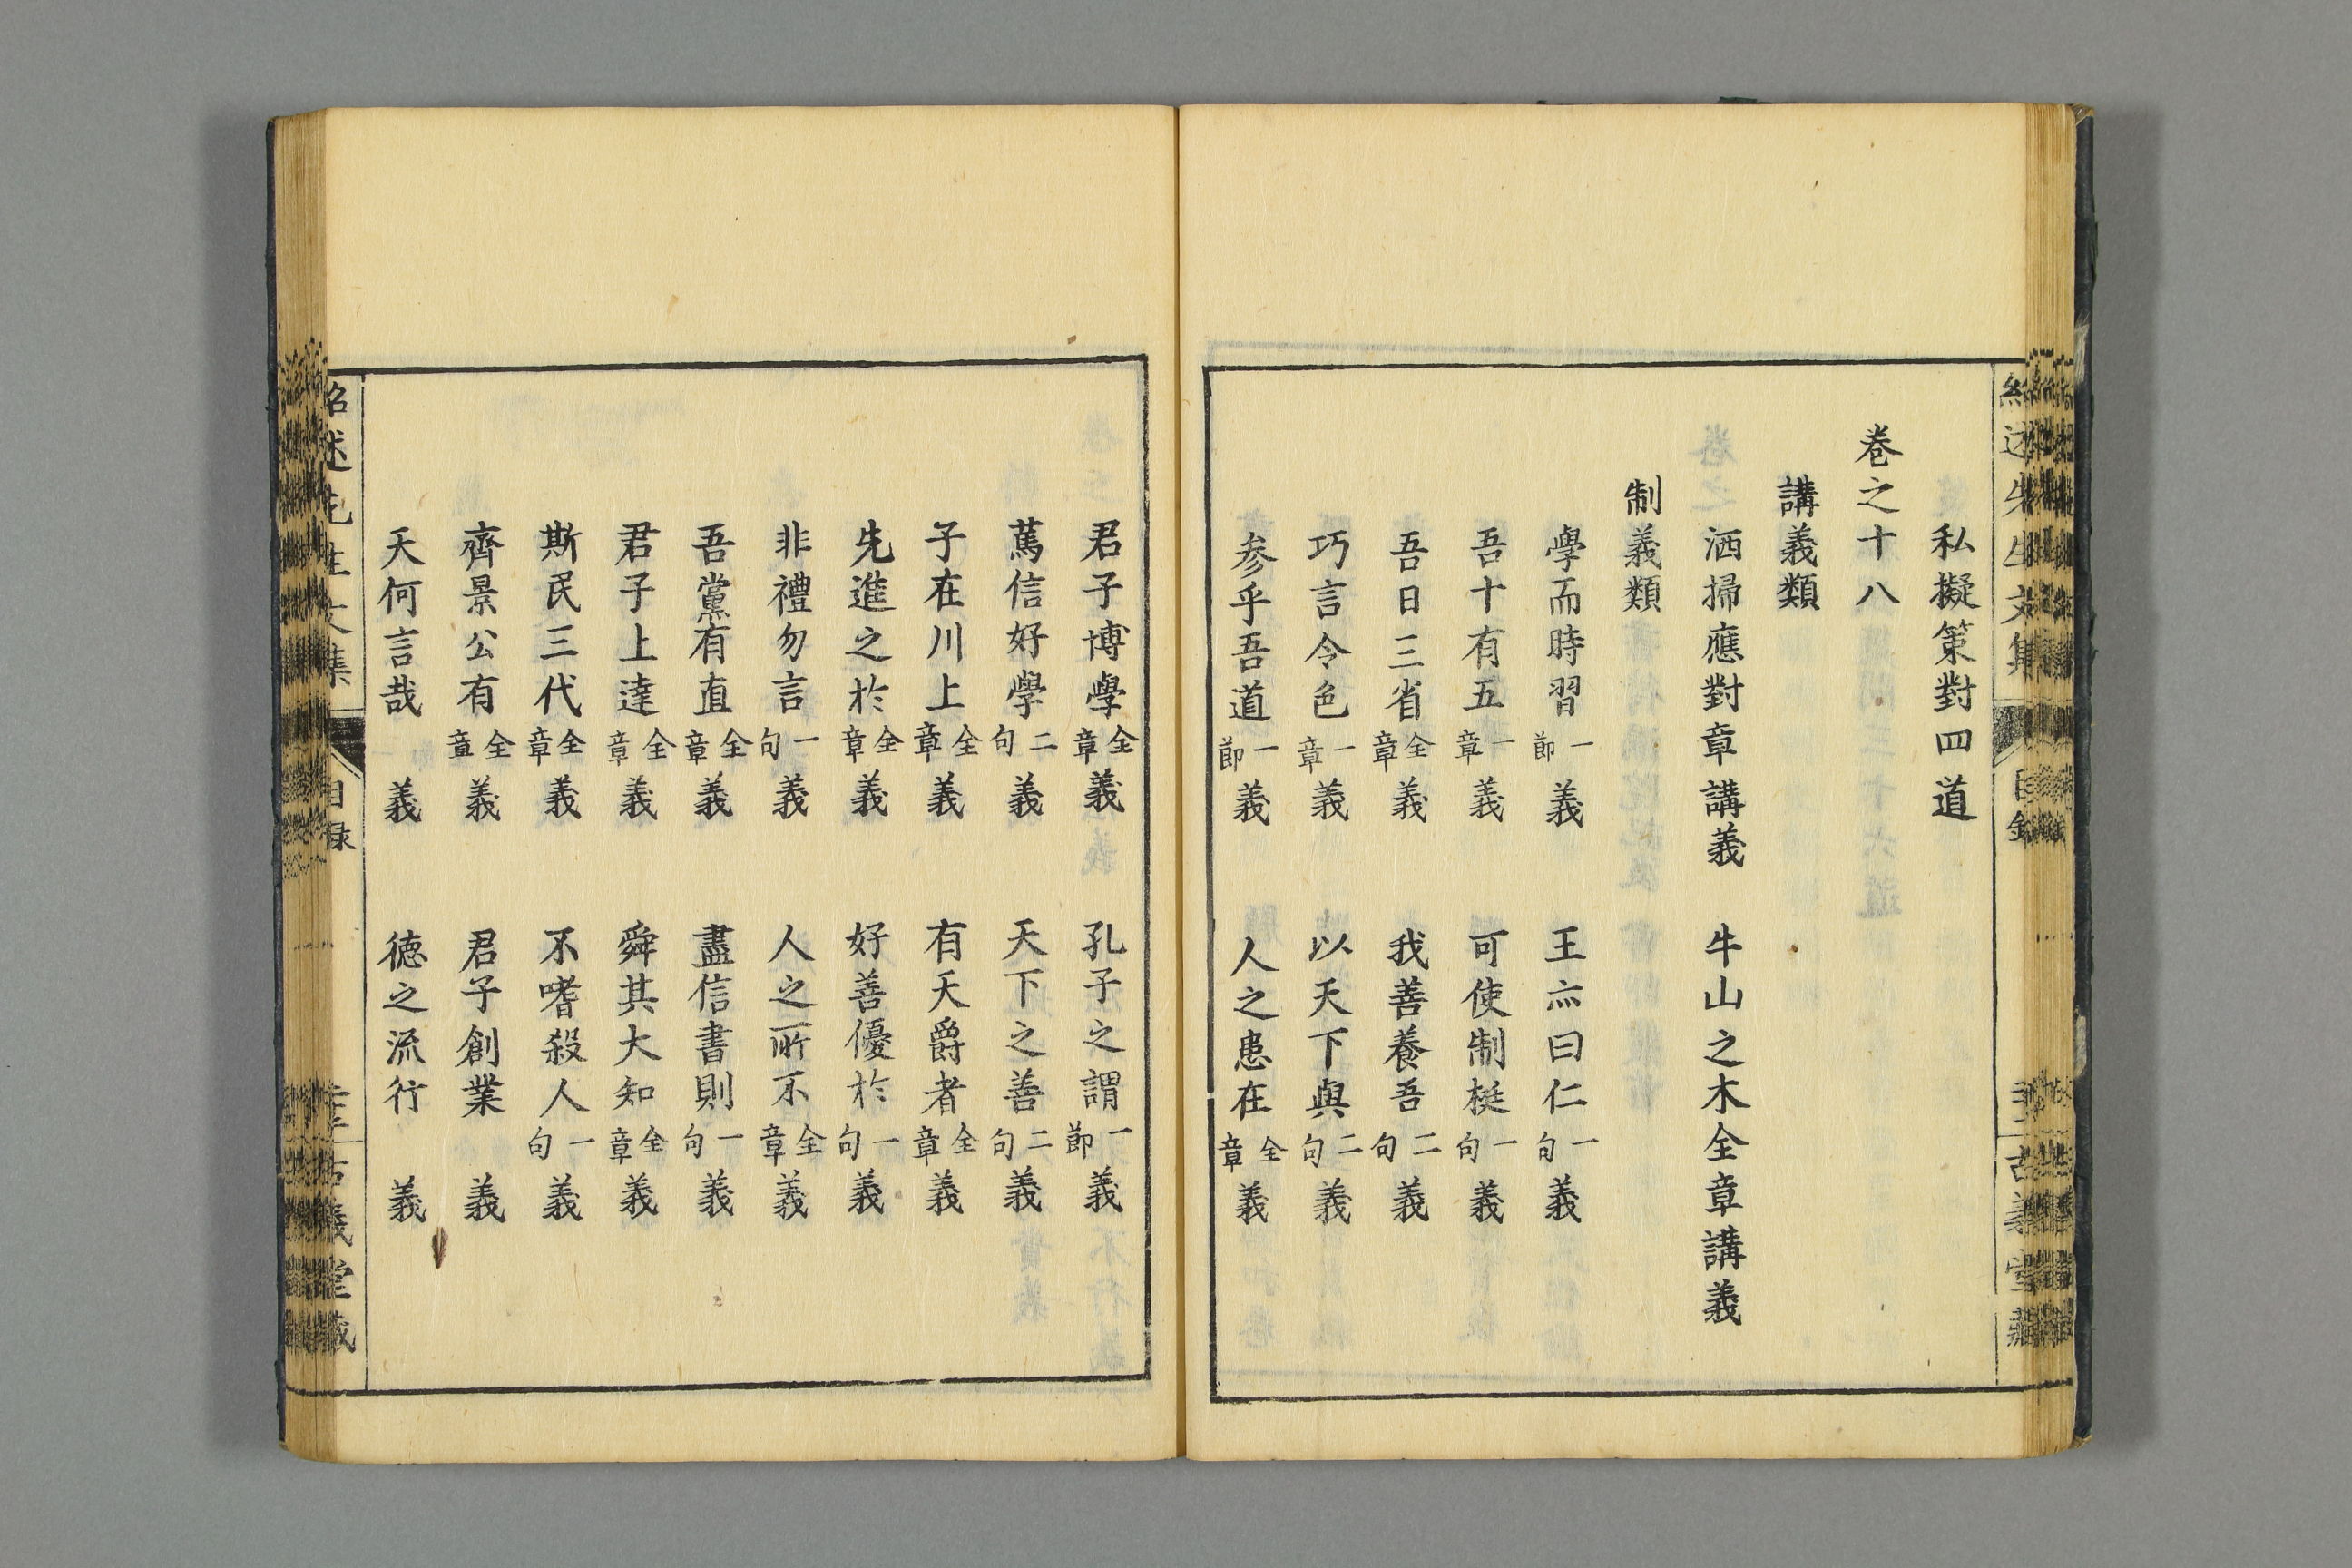 私擬策對四道
卷之十八
講義類
洒掃應對章講義 牛山之木全章講義
制義類
學而時習一節義 王亦曰仁一句義
吾十有五一章義 可使制梃一句義
吾日三省全章義 我善養吾二句義
巧言令色一章義 以天下與二句義
参乎吾道一節義 人之患在全章義
君子博學全章義 孔子之謂一節義
篤信好學二句義 天下之善二句義
子在川上全章義 有天爵者全章義
先進之於全章義 好善優於一句義
非禮勿言一句義 人之所不全章義
吾黨有直全章義 盡信書則一句義
君子上達全章義 舜其大知全章義
斯民三代全章義 不嗜殺人一句義
齊景公有全章義 君子創業義
天何言哉義 德之流行義